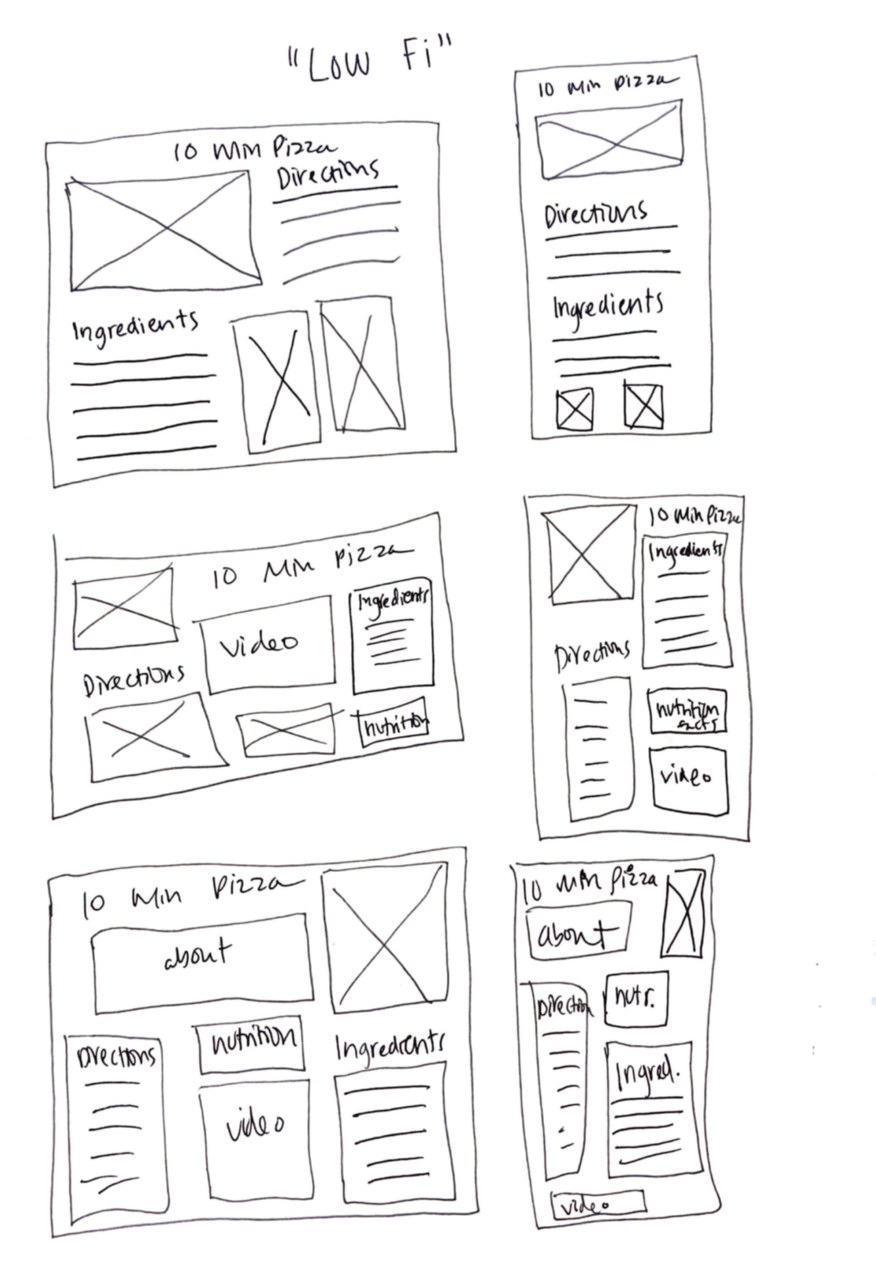 "Low Fi"
10 Min Pizza
Directions
Ingredients
10 Min Pizza
Directions
Ingredients
10 Min Pizza
video
Ingredients
Directions
nutrition
10 Min Pizza
Ingredients
Directions
nutrition
facts
video
10 Min Pizza
about
Directions
nutrition
Ingredients
video
10 Min Pizza
about
Direction
nutr.
Ingred.
video